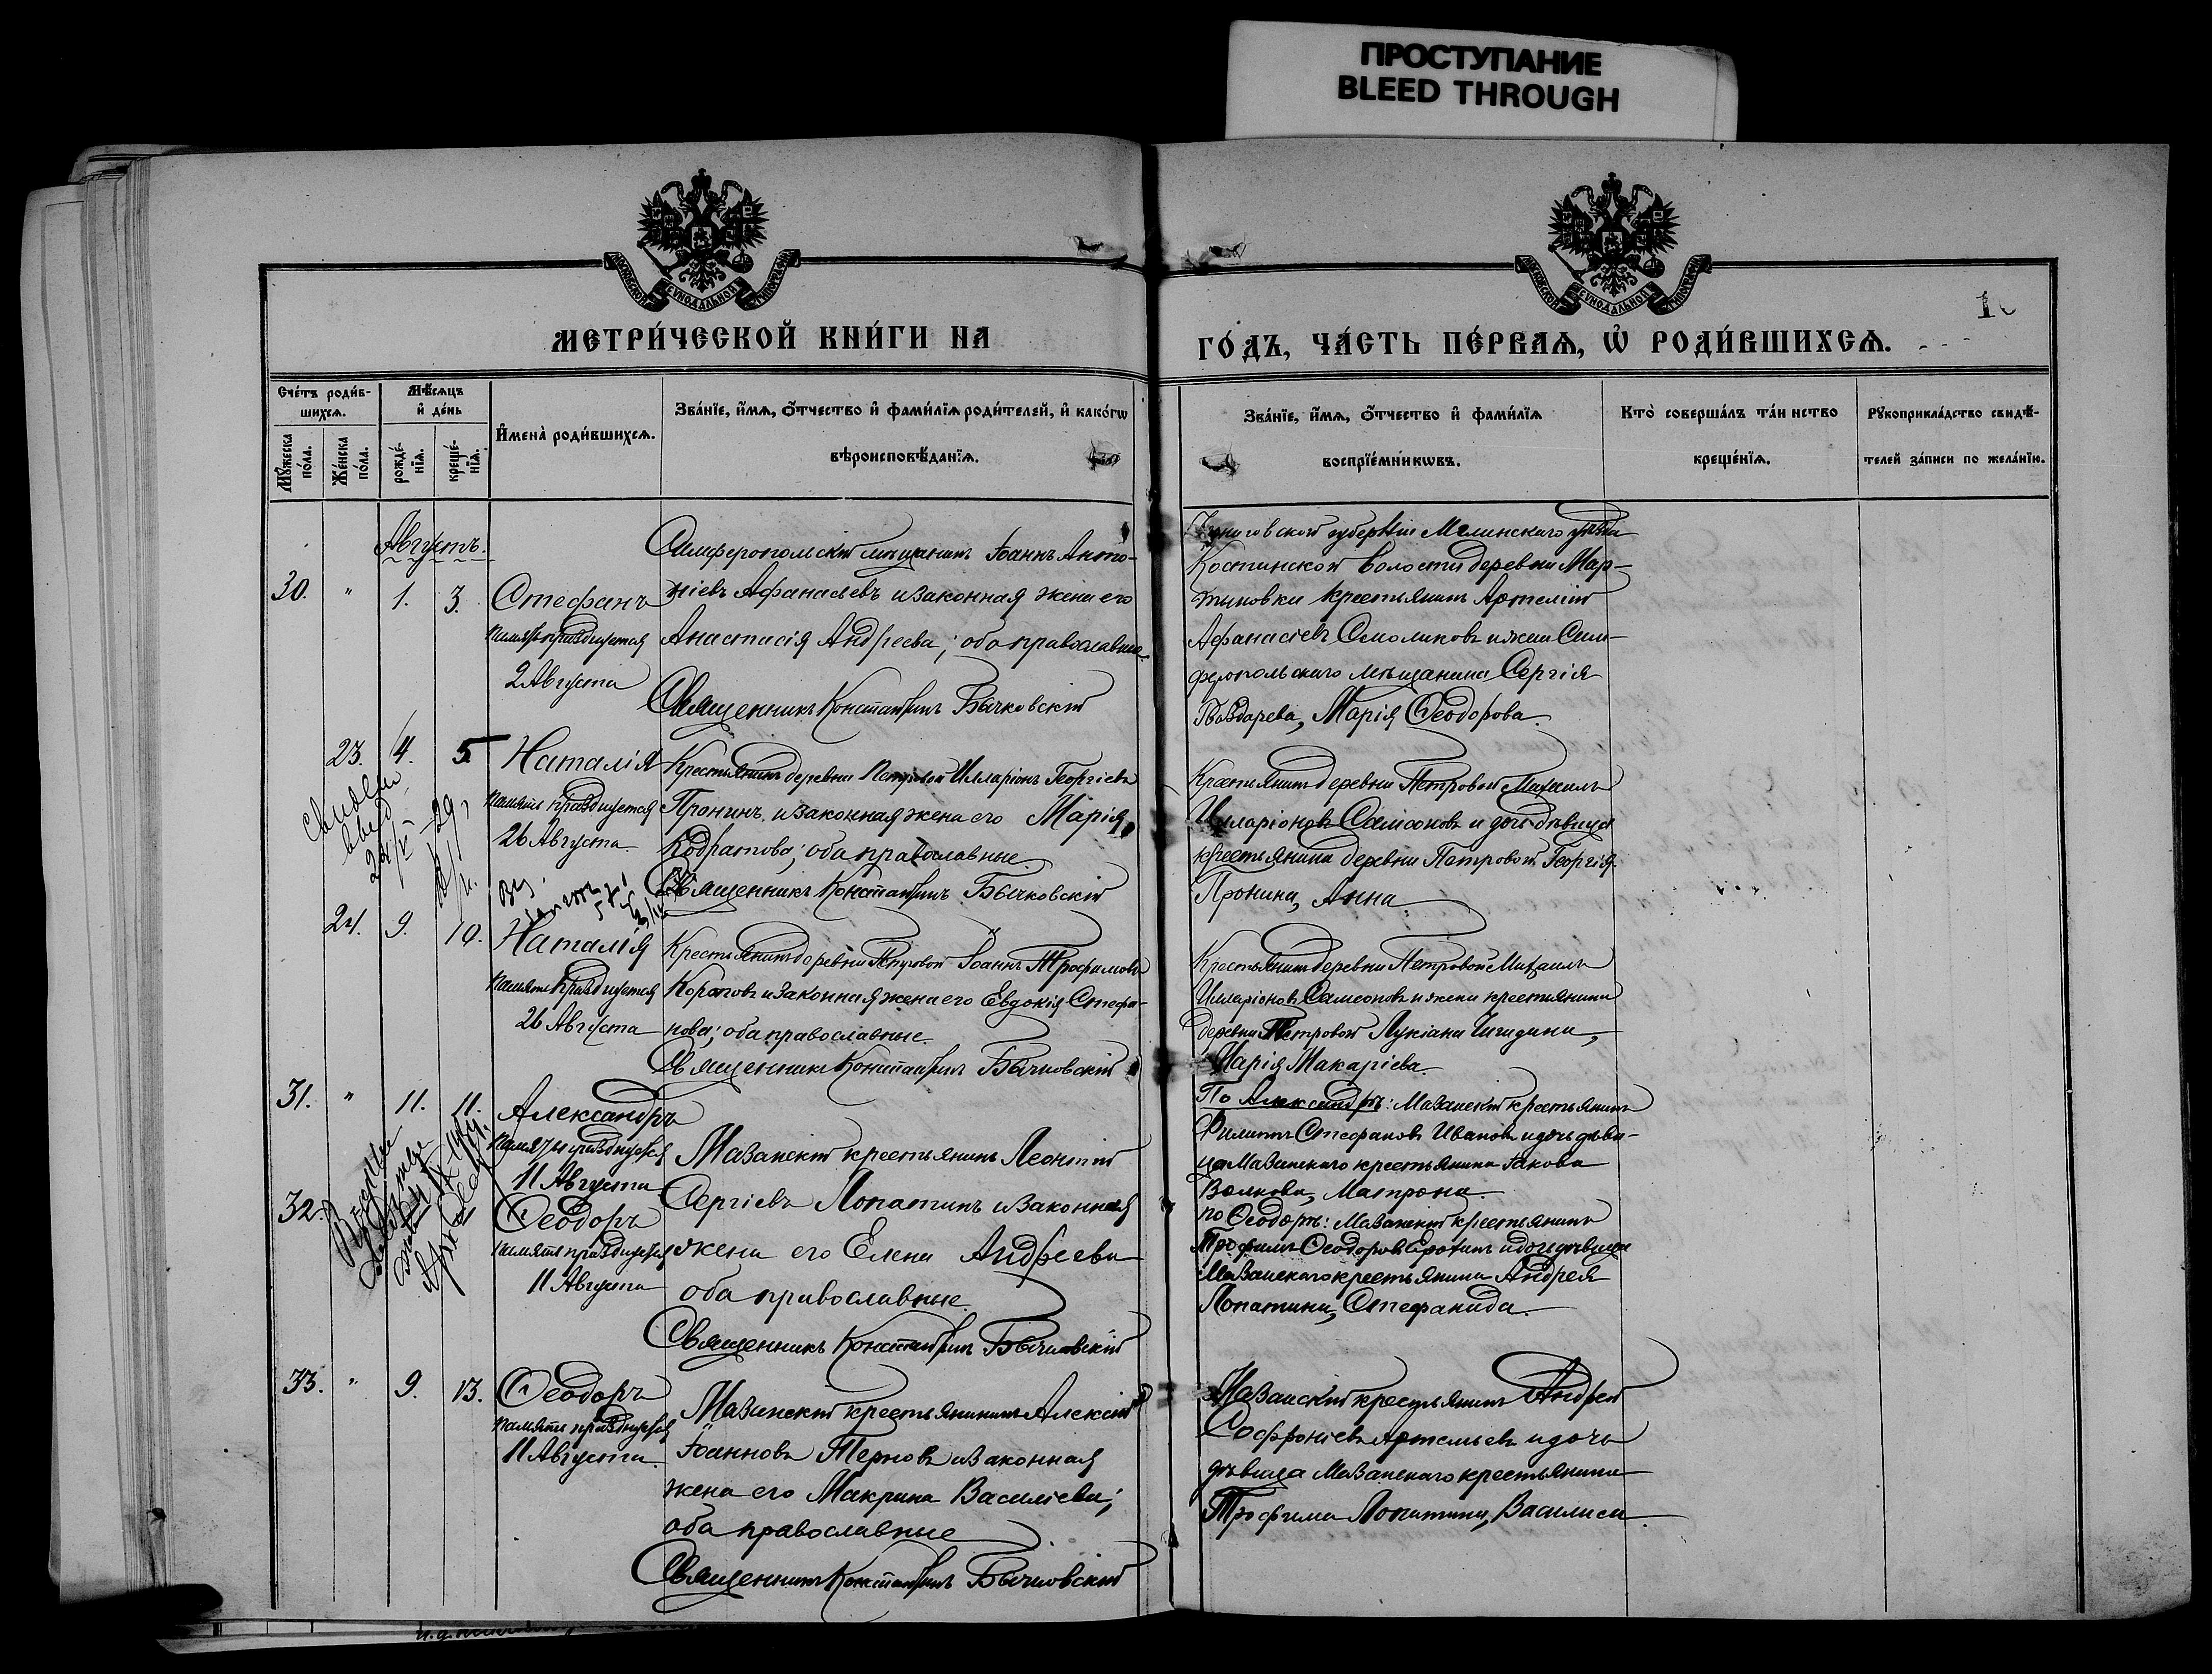 ПРОСТУПАНИЕ
BLEED THROUGH
МОСКОВСКОЙ СѴНОДАЛЬНОЙ ТИПОГРАФІИ
МОСКОВСКОЙ СѴНОДАЛЬНОЙ ТИПОГРАФІИ
МЕТРИ́ЧЕСКОЙ КНИ́ГИ НА
ГО́ДЪ, ЧА́СТЬ ПЕ́РВАѦ, Ѡ҆ РОДИ́ВШИХСѦ.
Сче́тъ роди́в-
шихсѧ.
Мꙋ́жеска по́ла.
Же́нска по́ла.
Мѣ́сѧцъ
и҆ де́нь
рожде́-
нїѧ.
креще́-
нїѧ.
И҆мена̀ роди́вшихсѧ.
Зва́нїе, и҆́мѧ, ѻ҆́тчество и҆ фами́лїѧ роди́телей, и҆ како́гѡ
вѣроисповѣ́данїѧ.
Зва́нїе, и҆́мѧ, ѻ҆́тчество и҆ фами́лїѧ
воспрїе́мникѡвъ.
Кто̀ соверша́лъ та́инство
креще́нїѧ.
Рꙋкоприкла́дство свидѣ́-
телей за́писи по жела́нїю.
Августъ.
30. " 1. 3. Стефанъ
память празднуется
2 Августа
Симферопольскій мѣщанинъ Іоаннъ Анто-
ніевъ Афанасьевъ и законная жена его
Анастасія Андреева; оба православные.
Священникъ Константинъ Бычковскій
Черниговской губерніи Мглинскаго уѣзда
Костинской волости деревни Мар-
тыновки крестьянинъ Артемій
Афанасіевъ Смоликовъ и жена Сим-
феропольскаго мѣщанина Сергія
Гвоздарева, Марія Ѳеодорова.
23. 4. 5. Наталія
память празднуется
26 Августа
Крестьянинъ деревни Петровой Илларіонъ Георгіевъ
Пронинъ и законная жена его Марія
Кодратова; оба православные
Священникъ Константинъ Бычковскій
Крестьянинъ деревни Петровой Михаилъ
Илларіоновъ Самсоновъ и дочь дѣвица
крестьянина деревни Петровой Георгія
Пронина, Анна
24. 9. 10. Наталія
память празднуется
26 Августа
Крестьянинъ деревни Петровой Іоаннъ Трофимовъ
и законная жена его Евдокія Стефа-
нова; оба православные.
Священникъ Константинъ Бычковскій
Крестьянинъ деревни Петровой Михаилъ
Илларіоновъ Самсоновъ и жена крестьянина
деревни Петровой Лукіана Чигидина,
Марія Макаріева.
31. " 11. 11. Александръ
память празднуется
11 Августа
32. Ѳеодоръ
память празднуется
11 Августа
Мазанскій крестьянинъ Леонтій
Сергіевъ Лопатинъ и законная
жена его Елена Андреева
оба православные.
Священникъ Константинъ Бычковскій
По Александрѣ: Мазанскій крестьянинъ
Филиппъ Стефановъ Ивановъ и дочь дѣви-
ца Мазанскаго крестьянина Іакова
Волкова, Матрона.
по Ѳеодорѣ: Мазанскій крестьянинъ
Трофимъ Ѳеодоровъ и дочь дѣвица
Мазанскаго крестьянина Андрея
Лопатина, Стефанида.
33. " 9. 13. Ѳеодоръ
память празднуется
11 Августа.
Мазанскій крестьянинъ Алексій
Іоанновъ Терновъ и законная
жена его Макрина Василіева;
оба православные
Священникъ Константинъ Бычковскій
Мазанскій крестьянинъ Андрей
Софроніевъ Артемьевъ и дочь
дѣвица Мазанскаго крестьянина
Трофима Лопатина, Василиса